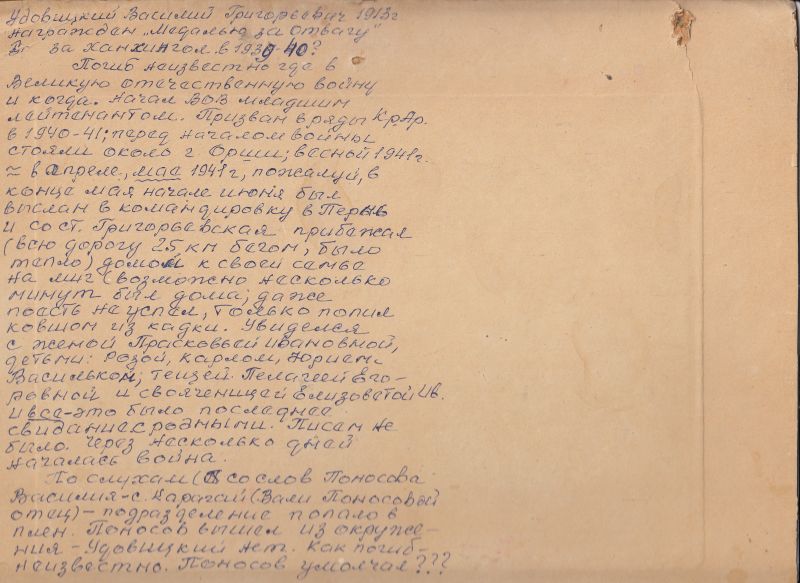 Удовицкий Василий Григорьевич 1913г
награжден „Медалью за Отвагу"
за Ханхингол в 1939 40?
Погиб неизвестно где в
Великую отечественную войну
и когда. Начал ВОВ младшим
лейтенантом. Призван в ряды Кр.Ар.
в 1940-41; перед началом войны
стояли около г Орши; весной 1941г.
≈ в апреле, мае 1941г, пожалуй, в
конце мая начале июня был
выслан в командировку в Пермь
и со ст. Григорьевская прибежал
(всю дорогу 25 км бегом, было
тепло) домой к своей семье
на миг (возможно несколько
минут был дома; даже
поесть не успел, только попил
ковшом из кадки. Увиделся
с женой Прасковьей Ивановной,
детьми: Розой, Карлом, Юрием
Васильком; тещей Пелагеей Его-
ровной и свояченицей Елизаветой Ив.
и все-это было последнее
свидание с родными. Писем не
было. Через несколько дней
началась война.
По слухам (со слов Поносова
Василия-с. Карагай (Вали Поносовой
отец) - подразделение попало в
плен. Поносов вышел из окруже-
ния - Удовицкий нет. Как погиб-
неизвестно. Поносов умолчал???